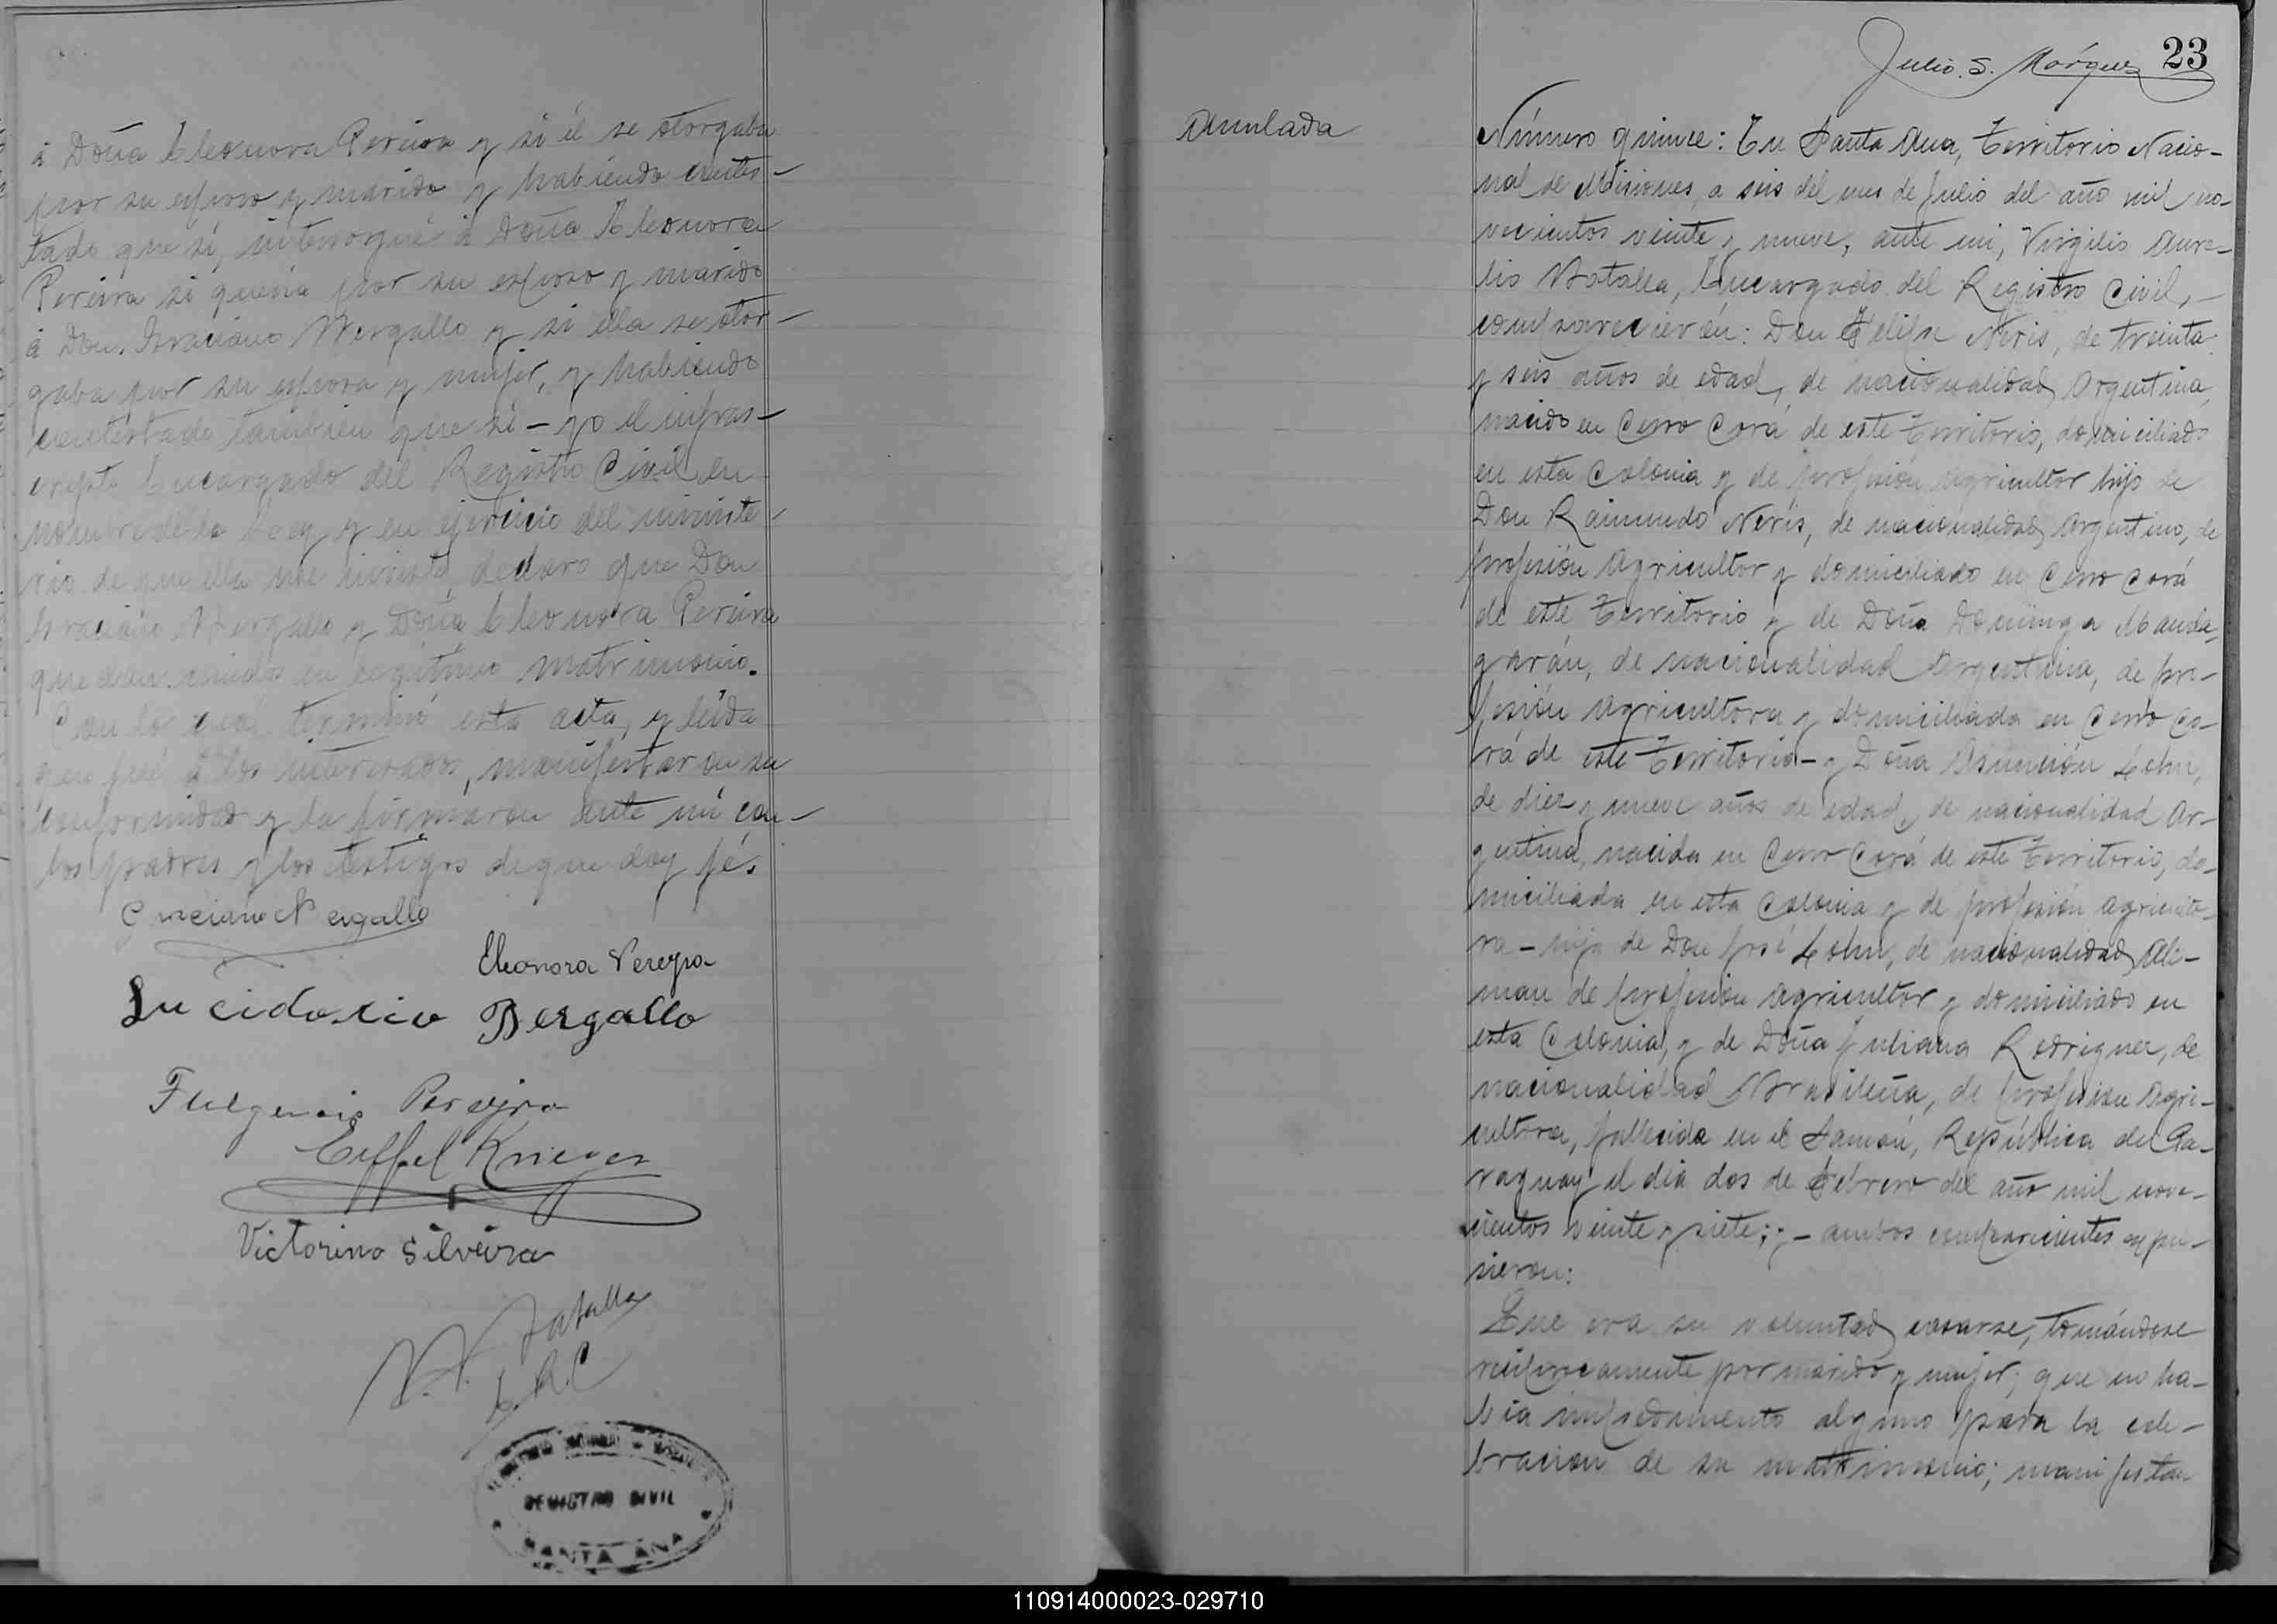 á Doña Eleonora Pereira y si él se otorgaba
por su esposo y marido y habiendo contes-
tado que sí, interrogué á Doña Eleonora
Pereira si quería por su esposo y marido
á Don Graciano Bergallo y si ella se otor-
gaba por su esposa y mujer, y habiendo
contestado también que sí - yo el infras-
cripto Encargado del Registro Civil, en
nombre de la Ley y en ejercicio del ministe-
rio de que ella me inviste, declaro que Don
Graciano Bergallo y Doña Eleonora Pereira
quedan unidos en legítimo matrimonio.
Con lo cual terminó esta acta, y leída
que fué á los interesados, manifestaron su
conformidad y la firmaron ante mí con
los padres y los testigos de que doy fé.
Graciano Bergallo
Eleonora Pereyra
Bergallo
Fulgencio Pereyra
Eiffel Krieger
Victorino Silveira
V. A. Batalla
E. R. C
REGISTRO CIVIL
SANTA ANA
Julio S. Márquez 23
Anulada
Número quince: En Santa Ana, Territorio Nacio-
nal de Misiones, a seis del mes de Julio del año mil no-
vecientos veinte y nueve, ante mi, Virgilio Aure-
lio Batalla, Encargado del Registro Civil, -
comparecierón: Don Felipe Neris, de treinta
y seis años de edad, de nacionalidad Argentina,
nacido en Cerro Corá de este Territorio, domiciliado
en esta Colonia y de profesión Agricultor hijo de
Don Raimundo Neris, de nacionalidad Argentino, de
profesión Agricultor y domiciliado en Cerro Corá
de este Territorio y de Doña Dominga Manda-
garán, de nacionalidad Argentina, de pro-
fesión Agricultora y domiciliada en Cerro Co-
rá de este Territorio - y Doña Asunción Lohn,
de diez y nueve años de edad, de nacionalidad Ar-
gentina, nacida en Cerro Corá de este Territorio, do-
miciliada en esta Colonia y de profesión agriculto-
ra - hija de Don José Lohn, de nacionalidad Ale-
man de profesión Agricultor y domiciliado en
esta Colonia, y de Doña Juliana Rodriguez, de
nacionalidad Brasileña, de profesion Agri-
cultora, fallecida en el República del Pa-
raguay el día dos de Febrero del año mil nove-
cientos veinte y siete; y - ambos comparecientes expu-
sieron:
Que era su voluntad casarse, tomándose
recíprocamente por marido y mujer; que no ha-
bía impedimento alguno para la cele-
bracion de su matrimonio; manifestan
110914000023-029710